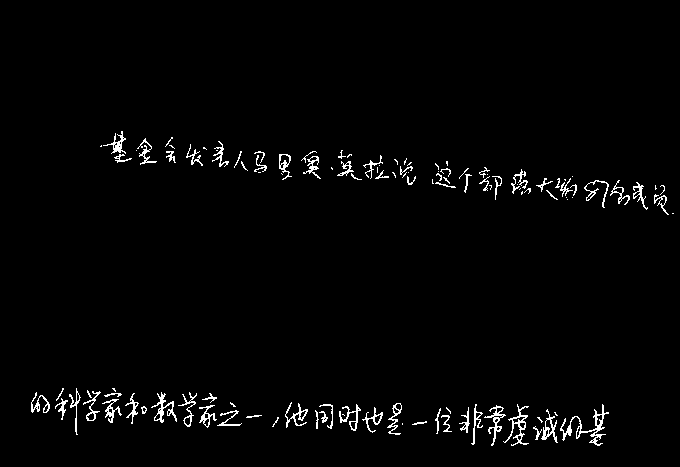 基金会发言人马里奥·莫拉说这个部落大约87名成员
的科学家和数学家之一,他同时也是一位非常虔诚的基